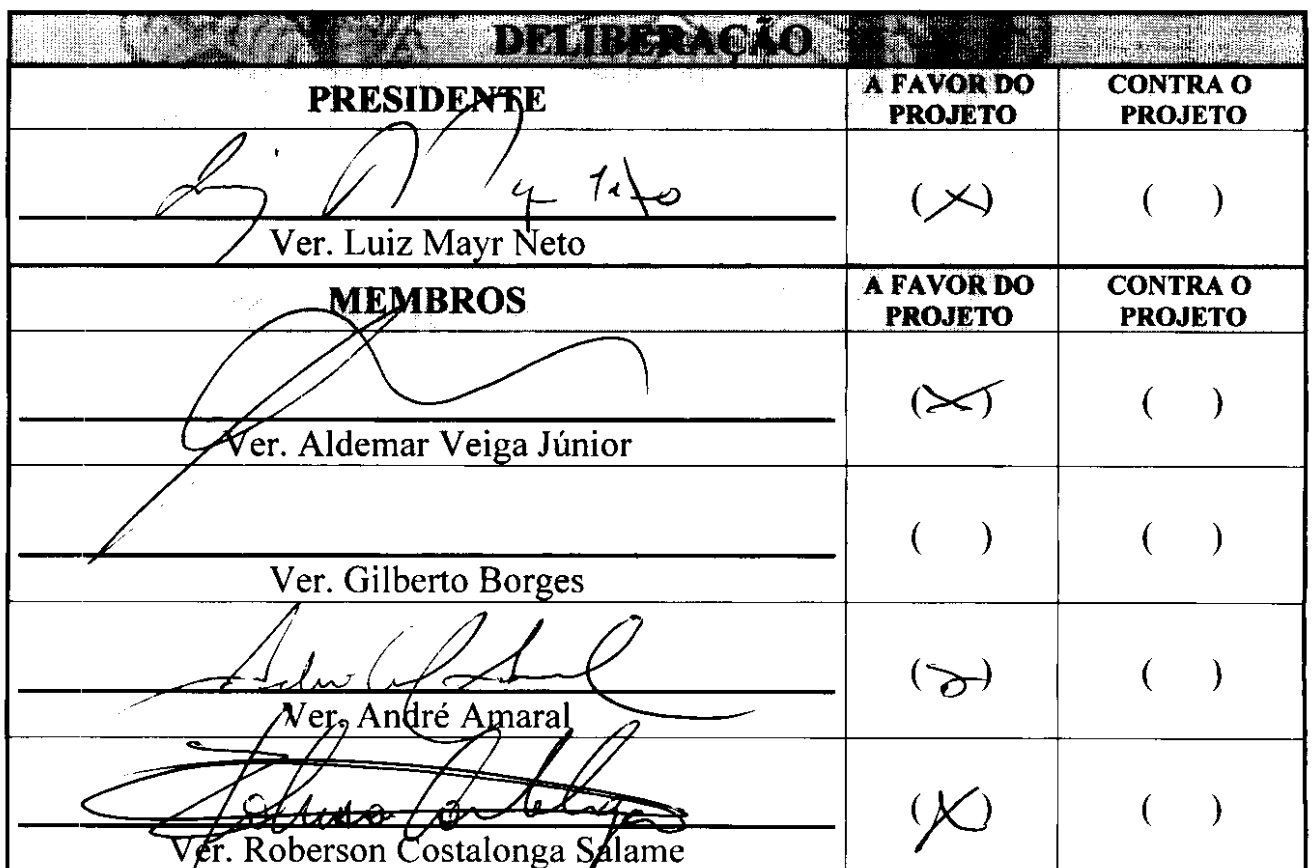 DELIBERAÇÃO
PRESIDENTE A FAVOR DO PROJETO CONTRA O PROJETO
(X) ( )
Ver. Luiz Mayr Neto
MEMBROS A FAVOR DO PROJETO CONTRA O PROJETO
(X) ( )
Ver. Aldemar Veiga Júnior
( ) ( )
Ver. Gilberto Borges
( ) 
Ver. André Amaral
(X) ( )
Ver. Roberson Costalonga Salame